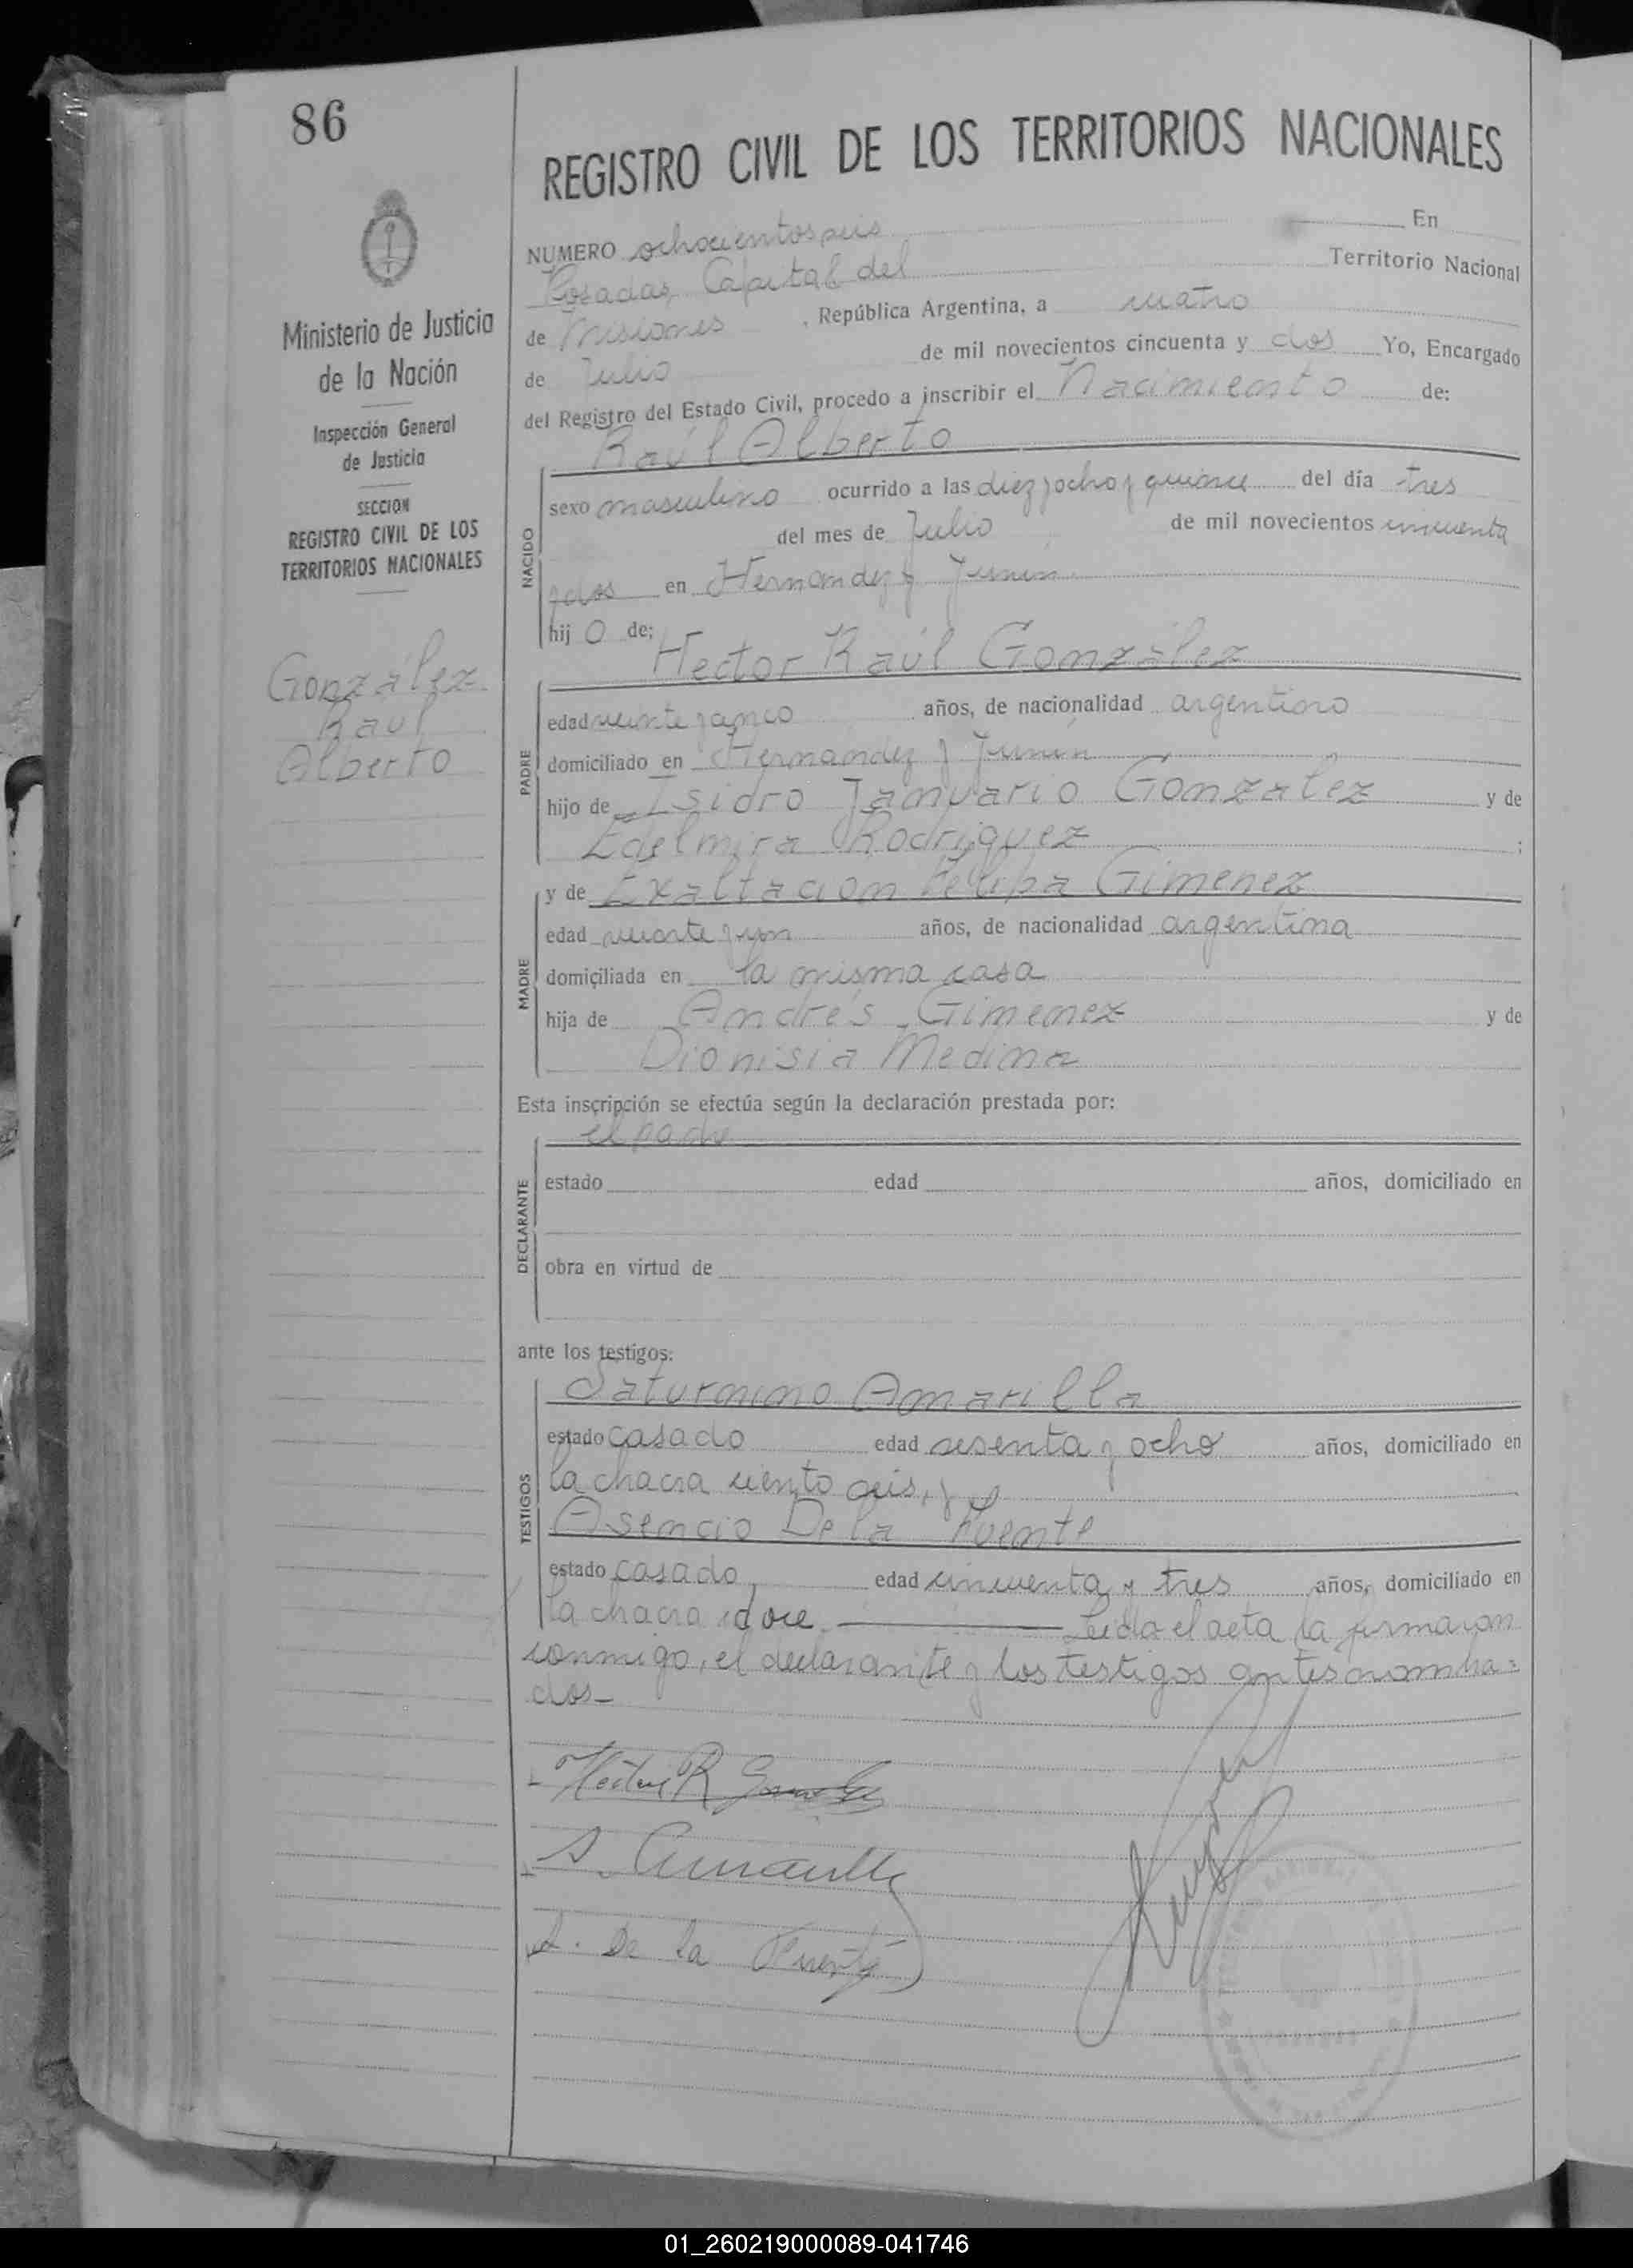 86
REGISTRO CIVIL DE LOS TERRITORIOS NACIONALES
NUMERO ochocientos seis En
Posadas, Capital del Territorio Nacional
de Misiones, República Argentina, a cuatro
de Julio de mil novecientos cincuenta y dos Yo, Encargado
del Registro del Estado Civil, procedo a inscribir el Nacimiento de:
Raúl Alberto
NACIDO
sexo masculino ocurrido a las diez y ocho y quince del día tres
del mes de Julio de mil novecientos cincuenta
y dos en Hernandez y Junín
hijo de:
Hector Raúl González
PADRE
edad veinte y cinco años, de nacionalidad argentino
domiciliado en Hernandez y Junín
hijo de Isidro Januario Gonzalez y de
Edelmira Rodriguez ;
y de Exaltacion Felipa Gimenez
MADRE
edad veinte y un años, de nacionalidad argentina
domiciliada en la misma casa
hija de Andrés Gimenez y de
Dionisia Medina
Esta inscripción se efectúa según la declaración prestada por:
el padre
DECLARANTE
estado edad años, domiciliado en
obra en virtud de
ante los testigos:
Saturnino Amarilla
TESTIGOS
estado casado edad sesenta y ocho años, domiciliado en
la chacra ciento seis, y
Asencio De la Fuente
estado casado, edad cincuenta y tres años, domiciliado en
la chacra doce. Leida el acta la firmaron
conmigo, el declarante y los testigos antes nombra=
dos-
Hector R Gonzalez
S. Amarilla
A. De la Fuente
Ministerio de Justicia
de la Nación
Inspección General
de Justicia
SECCION
REGISTRO CIVIL DE LOS
TERRITORIOS NACIONALES
González
Raul
Alberto
01_260219000089-041746